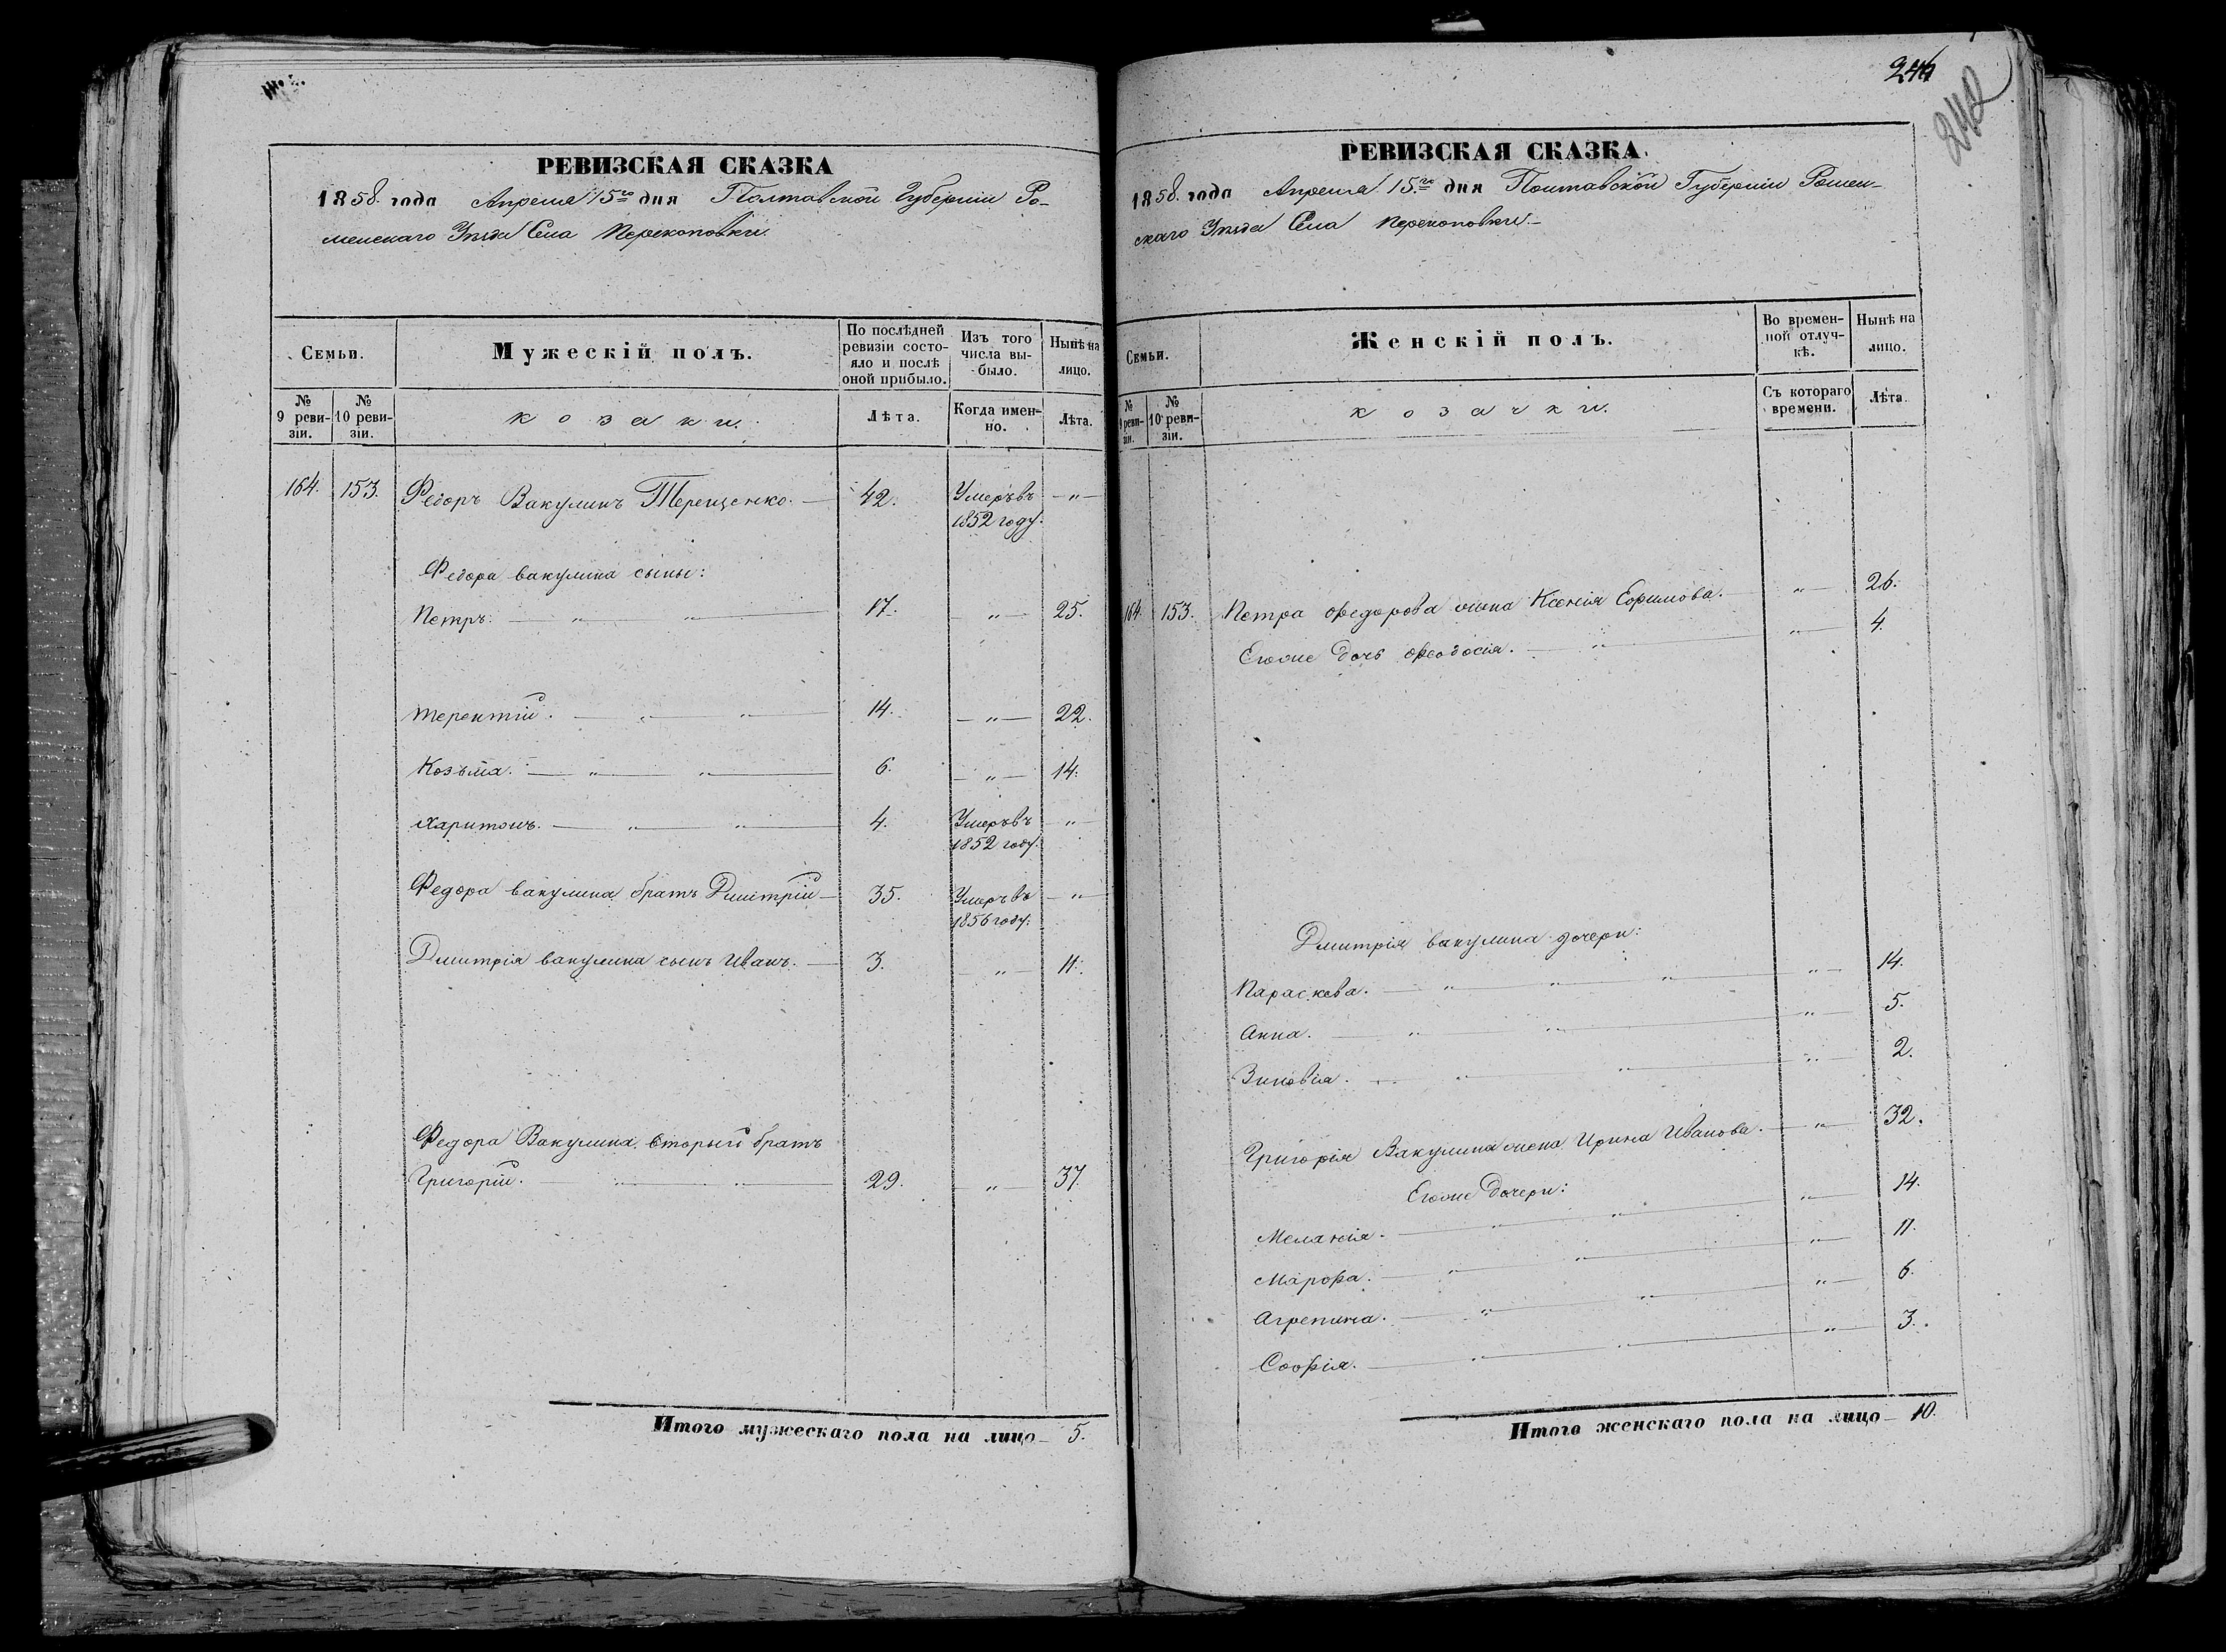 РЕВИЗСКАЯ СКАЗКА
1858. года Апреля 15го дня Полтавской Губернии Ро-
менскаго Уезда Села Перекоповки.
Семьи.
Мужескій полъ.
По послѣдней ревизіи состо-
яло и послѣ оной прибыло.
Изъ того числа вы-
было.
Нынѣ на лицо.
№ 9 реви-
зіи.
№ 10 реви-
зіи.
козаки.
Лѣта.
Когда имен-
но.
Лѣта.
164. 153. Федоръ Вакулинъ Терещенко. — 42. Умеръ въ — " —
1852 году.
Федора вакулина сыны:
Петръ. — " — " — 17. — " — 25.
Терентій. — " — " — 14. — " — 22.
Козьма. — " — " — 6. — " — 14.
Харитонъ. — " — " — 4. Умеръ въ — " —
1852 году.
Федора вакулина братъ Дмитрій — 35. Умеръ въ — " —
1856 году.
Дмитрія вакулина сынъ Иванъ. — 3. — " — 11.
Федора Вакулина вторый братъ
Григорій. — " — " — 29. — " — 37.
Итого мужескаго пола на лицо — 5.
246
242
РЕВИЗСКАЯ СКАЗКА.
1858. года Апреля 15.го дня Полтавской Губерніи Ромен-
скаго Уезда Села Перекоповки. —
Семьи.
Женскій полъ.
Во времен-
ной отлуч-
кѣ.
Нынѣ на лицо.
№ 9 реви-
зіи.
№ 10 реви-
зіи.
козачки.
Съ котораго времени.
Лѣта.
164. 153. Петра Федорова жена Ксенія Ефимова. — " — 26.
Егоже дочь Феодосія. — " — " — 4.
Дмитрія вакулина дочери:
Параскева. — " — " — " — " — 14.
Анна. — " — " — " — 5.
Зиновія. — " — " — " — 2.
Григорія Вакулина жена Ирина Иванова. — " — 32.
Егоже дочери:
Меланія. — " — " — " — 14.
Марфа. — " — " — " — 11.
Агрепина. — " — " — " — 6.
Софія. — " — " — " — 3.
Итого женскаго пола на лицо — 10.